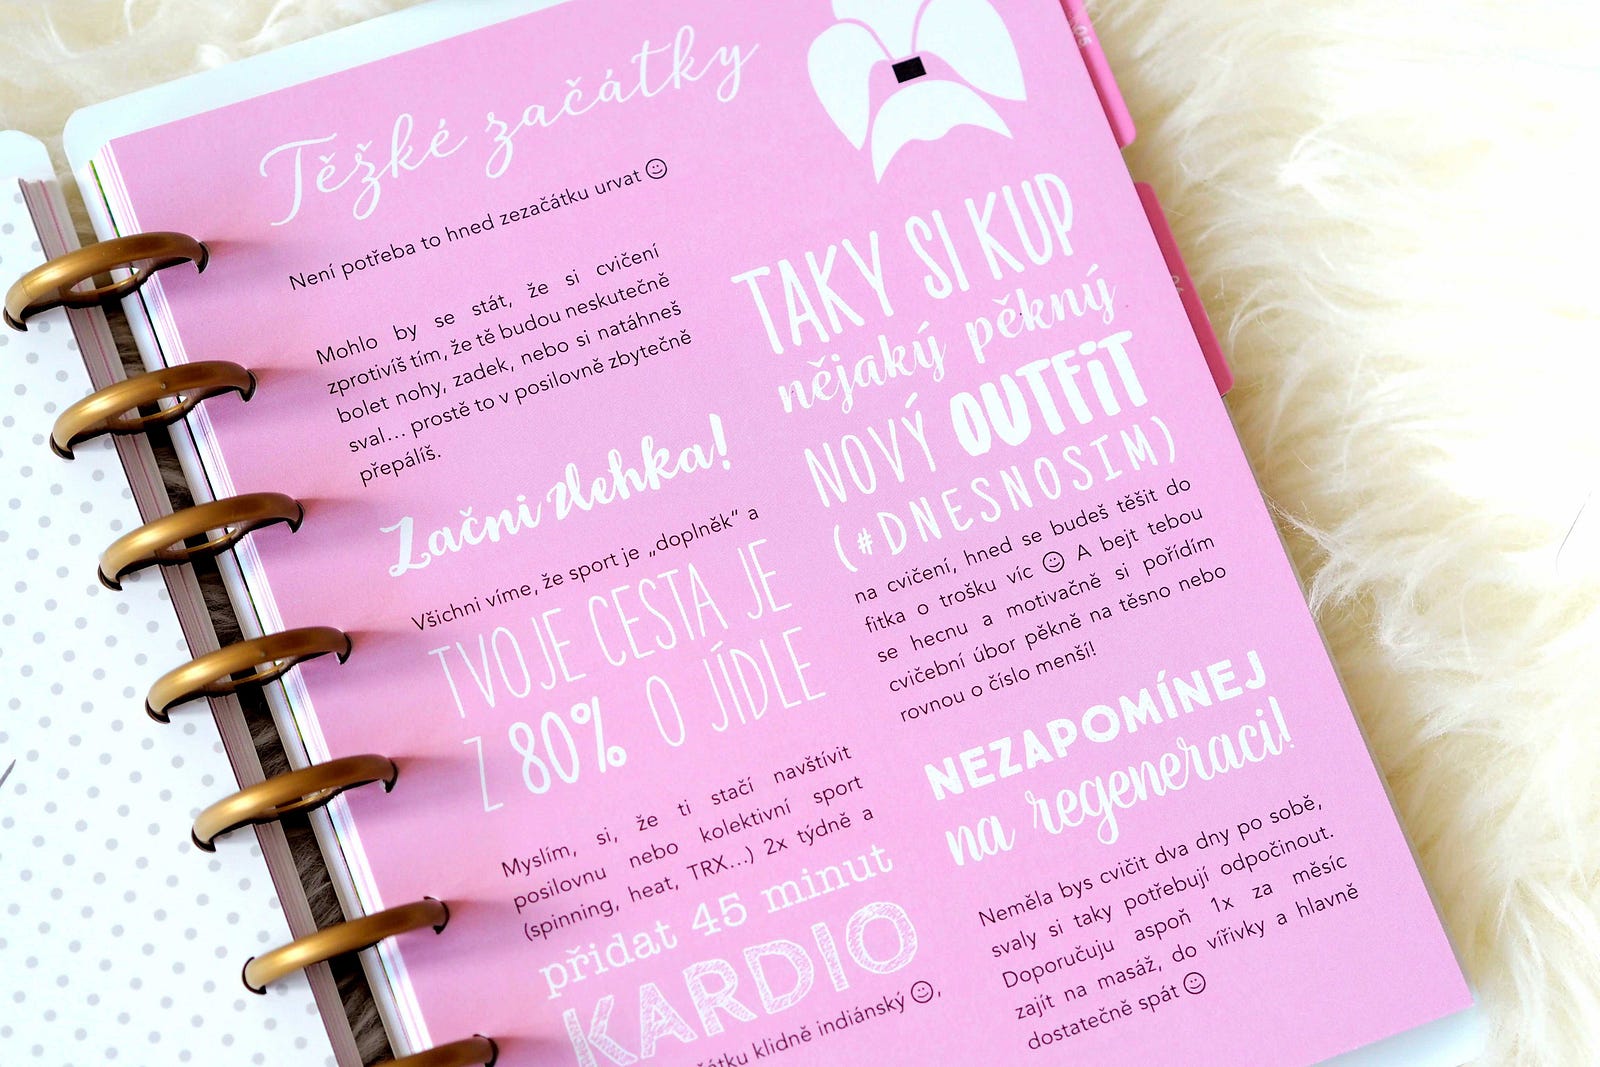 Těžké začátky
Není potřeba to hned zezačátku urvat ☺
Mohlo by se stát, že si cvičení
zprotivíš tím, že tě budou neskutečně
bolet nohy, zadek, nebo si natáhneš
sval... prostě to v posilovně zbytečně
přepálíš.
Začni zlehka!
Všichni víme, že sport je „doplněk“ a
TVOJE CESTA JE
Z 80% O JÍDLE
Myslím, si, že ti stačí navštívit
posilovnu nebo kolektivní sport
(spinning, heat, TRX...) 2x týdně a
přidat 45 minut
KARDIO
klidně indiánský ☺,
TAKY SI KUP
nějaký pěkný
NOVÝ OUTFiT
(#DNESNOSIM)
na cvičení, hned se budeš těšit do
fitka o trošku víc ☺ A bejt tebou
se hecnu a motivačně si pořídím
cvičební úbor pěkně na těsno nebo
rovnou o číslo menší!
NEZAPOMÍNEJ
na regeneraci!
Neměla bys cvičit dva dny po sobě,
svaly si taky potřebují odpočinout.
Doporučuju aspoň 1x za měsíc
zajít na masáž, do vířivky a hlavně
dostatečně spát ☺
05